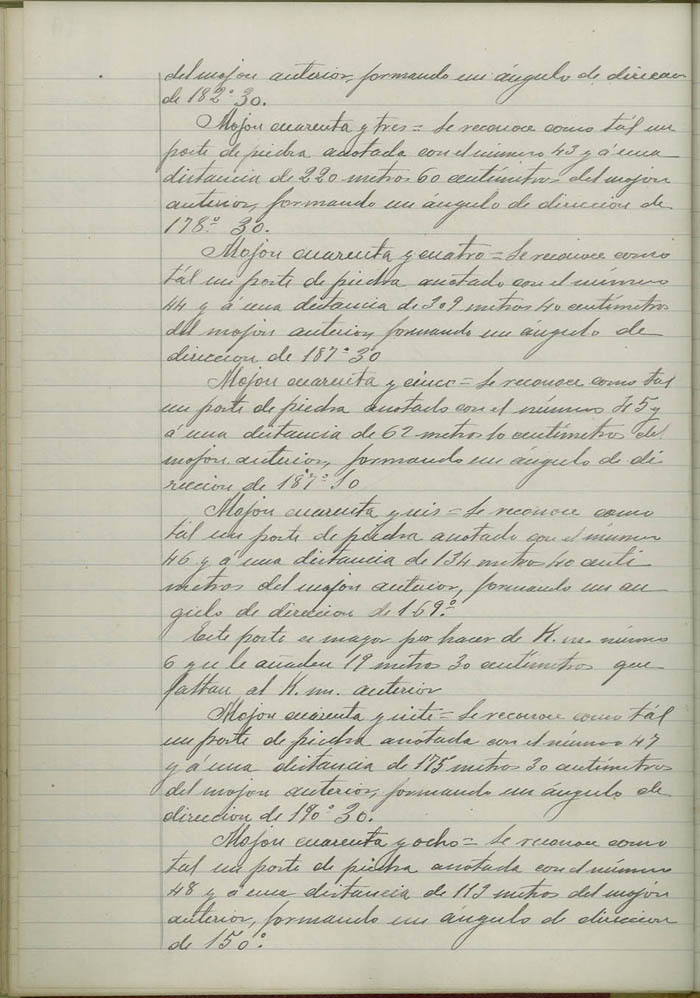 del mojon anterior, formando un ángulo de direccion
de 182º 30.
Mojon cuarenta y tres = Se reconoce como tál un
poste de piedra anotada con el número 43 y á una
distancia de 220 metros 60 centímetros del mojon
anterior, formando un ángulo de direccion de
178º 30.
Mojon cuarenta y cuatro = Se reconoce como
tál un poste de piedra anotado con el número
44 y á una distancia de 309 metros 40 centímetros
del mojon anterior, formando un ángulo de
direccion de 187º 30
Mojon cuarenta y cinco = Se reconoce como tal
un poste de piedra anotado con el número 45 y
á una distancia de 62 metros 10 centímetros del
mojon anterior, formando un ángulo de di
reccion de 187º 30
Mojon cuarenta y seis = Se reconoce como
tál un poste de piedra anotado con el número
46 y á una distancia de 134 metros 40 centi
metros del mojón anterior, formando un an
gulo de direccion de 169º
Este poste es mayor por hacer de K. m. número
6 que le añaden 19 metros 30 centímetros que
faltan al K. m. anterior
Mojon cuarenta y siete = Se reconoce como tál
un poste de piedra anotada con el número 47
y á una distancia de 175 metros 30 centímetros
del mojon anterior, formando un ángulo de
direccion de 190º 30.
Mojon cuarenta y ocho = Se reconoce como
tal un poste de piedra anotada con el número
48 y á una distancia de 113 metros del mojón
anterior, formando un ángulo de direccion
de 150º.